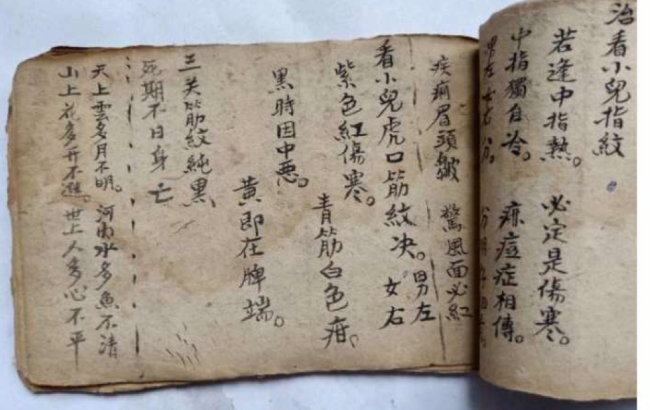 治看小兒指紋
若逢中指熱。 必定是傷寒。
中指獨自冷。 痘症相傳。
男左女右分。
眉頭皺 驚風面必紅
看小兒虎口筋紋决。男左 女右
紫色紅傷寒。 青筋白色疳。
黑時因中惡。 黃即在牌端。
三关筋紋純黑
死期不日身亡
天上雲多月不明。 河内水多魚不清
山上花多开不 。 世上人多心不平